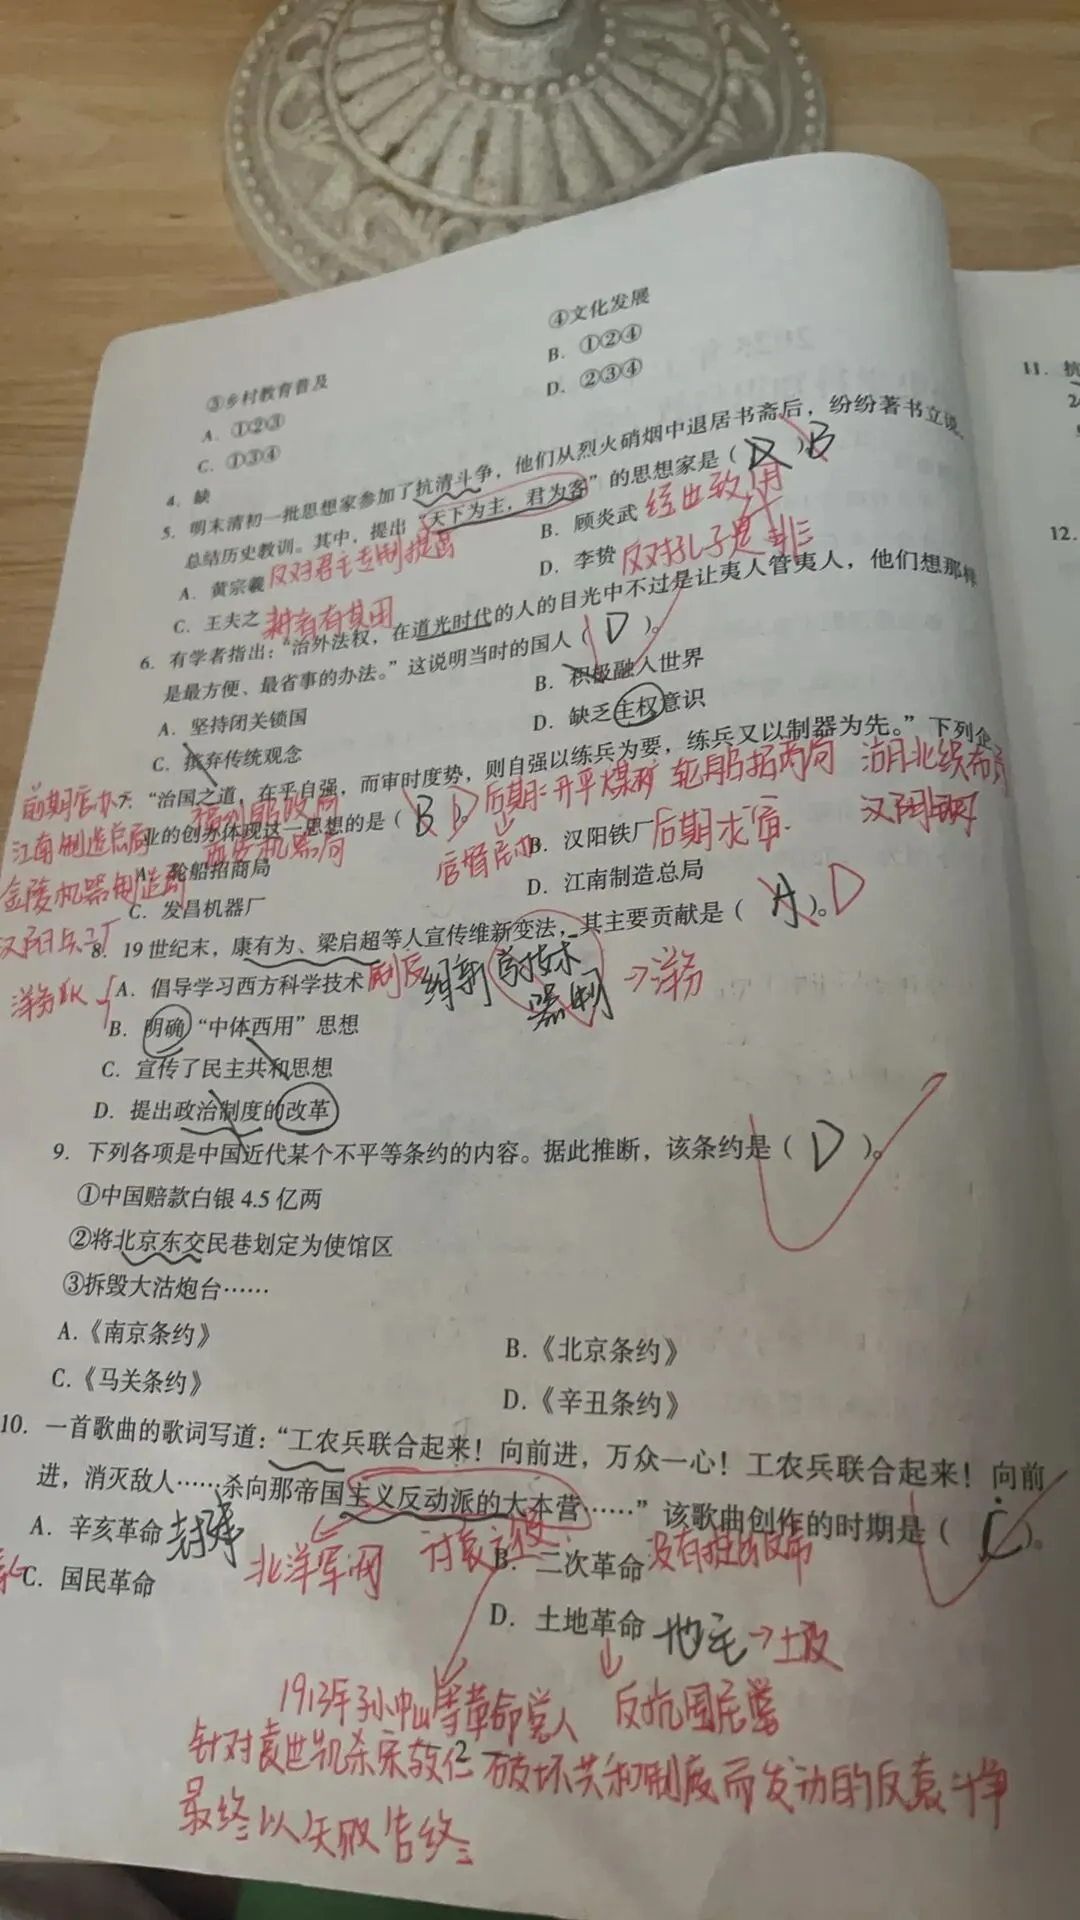 ③乡村教育普及
④文化发展
A. ①②③
B. ①②④
C. ①③④
D. ②③④
4. 缺
5. 明末清初一批思想家参加了抗清斗争，他们从烈火硝烟中退居书斋后，纷纷著书立说、
总结历史教训。其中，提出“天下为主，君为客”的思想家是（ ）。B
A. 黄宗羲 反对君主专制提高
B. 顾炎武 经世致用
C. 王夫之 耕者有其田
D. 李贽 反对孔子是非
6. 有学者指出：“治外法权，在道光时代的人的目光中不过是让夷人管夷人，他们想那样
是最方便、最省事的办法。”这说明当时的国人（ D ）。
A. 坚持闭关锁国
B. 积极融入世界
C. 摈弃传统观念
D. 缺乏主权意识
7. “治国之道，在乎自强，而审时度势，则自强以练兵为要，练兵又以制器为先。”下列企
业的创办体现这一思想的是（ B ）。D
前期官办
江南制造总局
金陵机器制造局
福州船政局
后期：开平煤矿 轮船招商局 湖北织布局
官督商办
A. 轮船招商局
B. 汉阳铁厂 后期求富
C. 发昌机器厂
D. 江南制造总局
8. 19世纪末，康有为、梁启超等人宣传维新变法，其主要贡献是（ A ）。D
A. 倡导学习西方科学技术 制度 维新
技术
器物 → 洋务
洋务派
B. 明确“中体西用”思想
C. 宣传了民主共和思想
D. 提出政治制度的改革
9. 下列各项是中国近代某个不平等条约的内容。据此推断，该条约是（ D ）。
①中国赔款白银4.5亿两
②将北京东交民巷划定为使馆区
③拆毁大沽炮台……
A.《南京条约》
B.《北京条约》
C.《马关条约》
D.《辛丑条约》
10. 一首歌曲的歌词写道：“工农兵联合起来！向前进，万众一心！工农兵联合起来！向前
进，消灭敌人……杀向那帝国主义反动派的大本营……”该歌曲创作的时期是（ C ）。
A. 辛亥革命
北洋军阀
B. 二次革命 没有提出反帝
C. 国民革命
D. 土地革命 地主 →
1913年孙中山等革命党人 反抗国民党
针对袁世凯杀宋教仁 破坏共和制度而发动的反袁斗争
最终以失败告终
2
11. 抗
12.